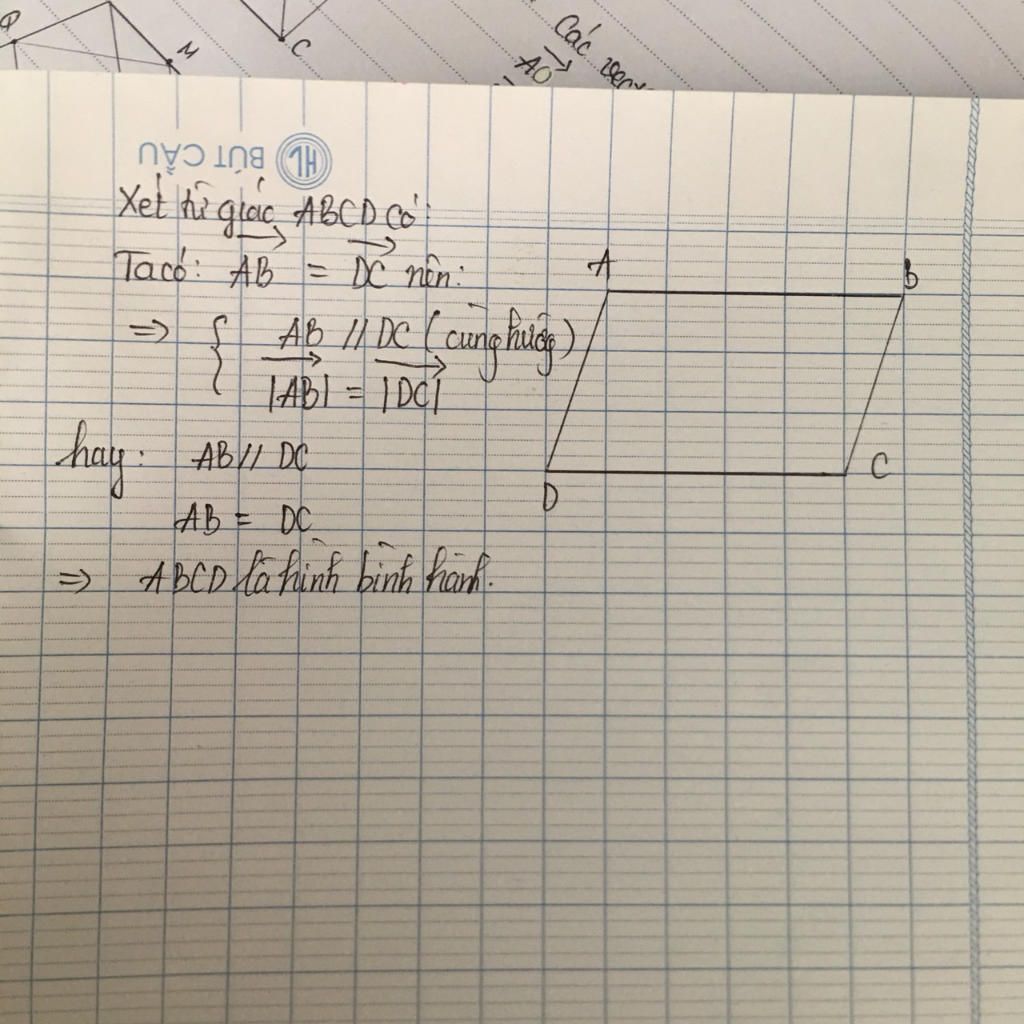 P
M
C
Các
AO
HL BÚT CẦU
Xét tứ giác ABCD có:
Ta có: AB = DC nên:
=> { AB // DC (cùng hướng)
|AB| = |DC|
hay: AB // DC
AB = DC
=> ABCD là hình bình hành.
A
B
D
C